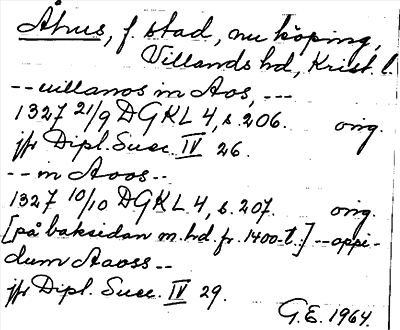 Åhus, f. stad, nu köping,
Villands hd, Krist. l.
-- uillanos in Aos, ---
1327 21/9 DGKL 4, s. 206. orig.
jfr Dipl. Suec. IV 26.
-- in Aoos --
1327 10/10 DGKL 4, s. 207. orig.
[på baksidan m. hd. fr. 1400-t.] -- oppi-
dum Aaoss --
jfr Dipl. Suec. IV 29.
G.E. 1964.